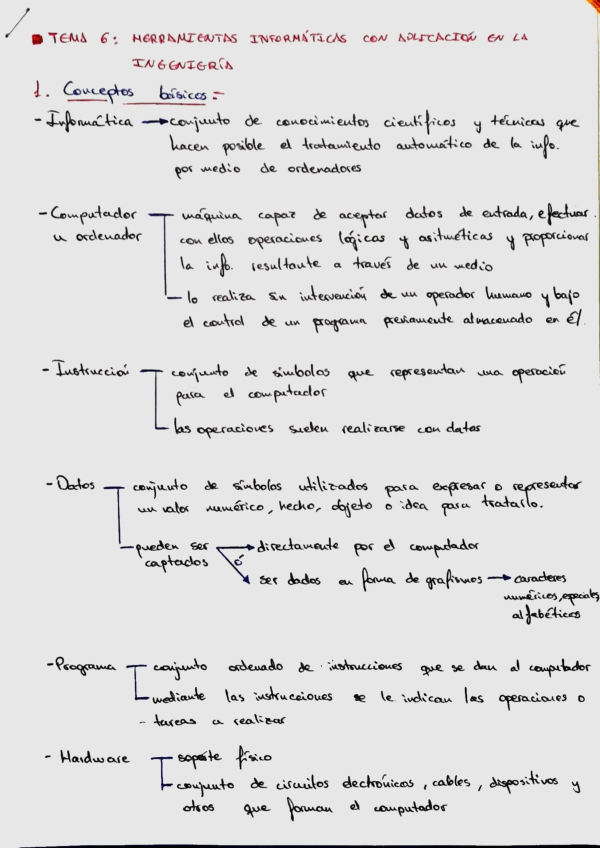 TEMA 6: HERRAMIENTAS INFORMÁTICAS CON APLICACIÓN EN LA
INGENIERÍA
1. Conceptos básicos:-
- Informática → conjunto de conocimientos científicos y técnicas que
hacen posible el tratamiento automático de la info.
por medio de ordenadores
- Computador — máquina capaz de aceptar datos de entrada, efectuar
u ordenador con ellos operaciones lógicas y aritméticas y proporcionar
la info. resultante a través de un medio
lo realiza sin intervención de un operador humano y bajo
el control de un programa previamente almacenado en él.
- Instrucción — conjunto de símbolos que representan una operación
para el computador
las operaciones suelen realizarse con datos
- Datos — conjunto de símbolos utilizados para expresar o representar
un valor numérico, hecho, objeto o idea para tratarlo.
pueden ser → directamente por el computador
captados ó
ser dados en forma de grafismos → caracteres
numéricos, especiales,
alfabéticos
- Programa — conjunto ordenado de instrucciones que se dan al computador
mediante las instrucciones se le indican las operaciones o
- tareas a realizar
- Hardware — soporte físico
conjunto de circuitos electrónicos, cables, dispositivos y
otros que forman el computador